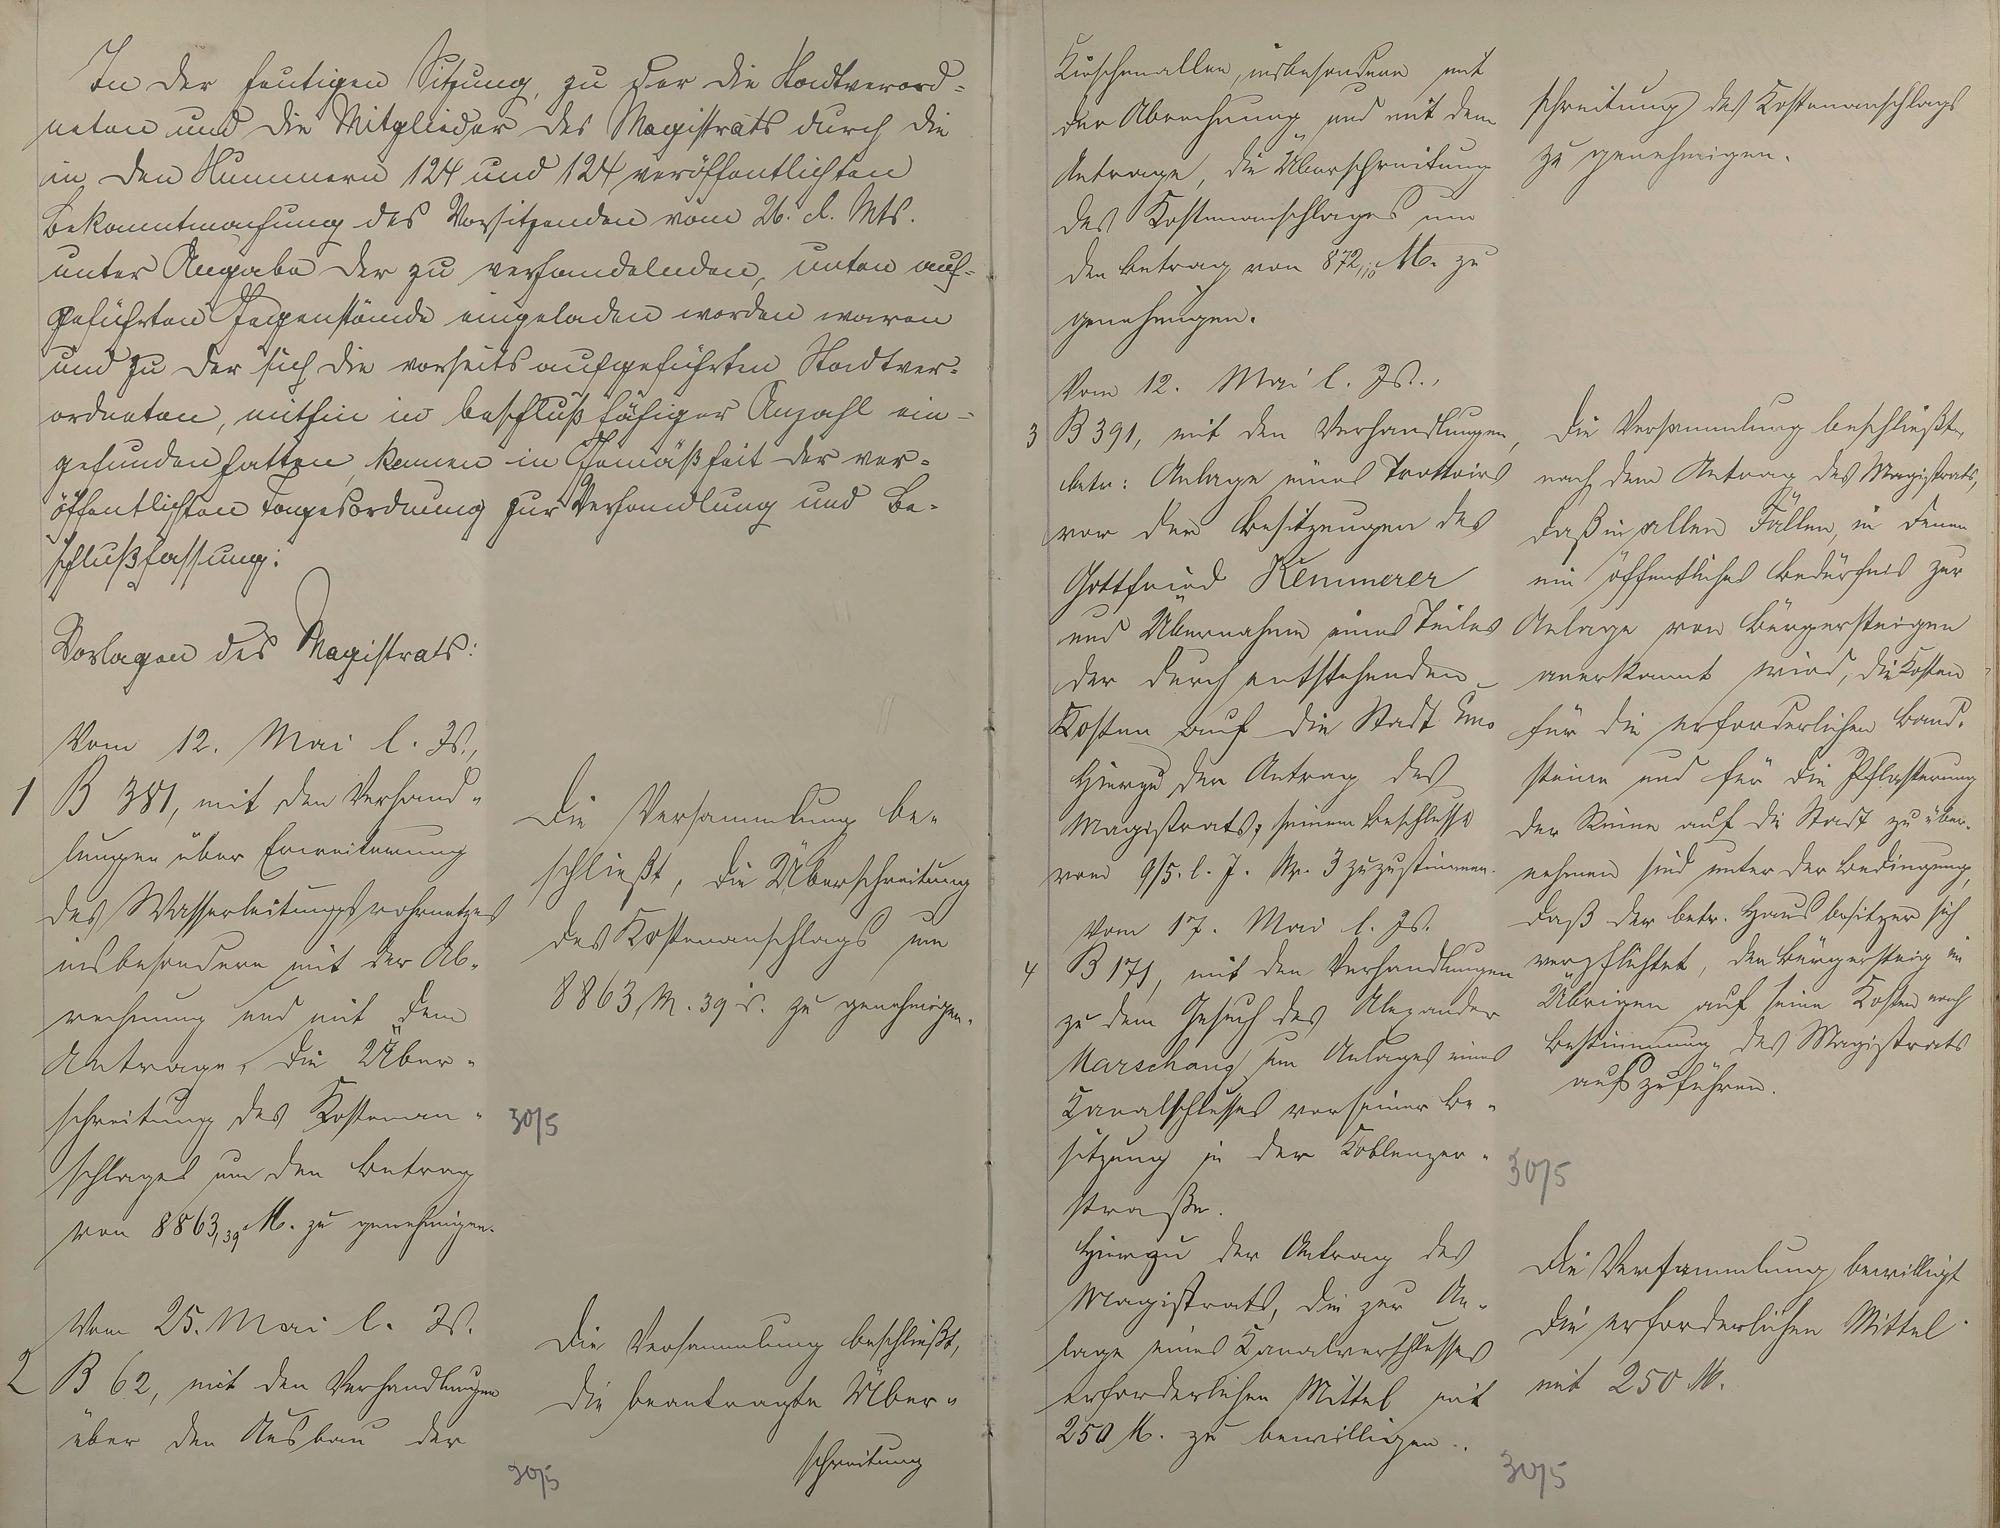 In der heutigen Sitzung, zu der die Stadtverord-
neten und die Mitglieder des Magistrats durch die
in den Nummern 124 und 124 veröffentlichten
Bekanntmachung des Vorsitzenden vom 26. d. Mts.
unter Angabe der zu verhandelnden, unten auf-
geführten Gegenstände eingeladen worden waren
und zu der sich die vorseits aufgeführten Stadtver-
ordneten, mithin in beschlußfähiger Anzahl ein-
gefunden hatten, kamen in Gemäßheit der ver-
öffentlichten Tagesordnung zur Verhandlung und Be-
schlußfassung:
Vorlagen des Magistrats:
Vom 12. Mai l. Js.,
1 B 381, mit den Verhand-
lungen über Erweiterung
des Wasserleitungsrohrnetzes
insbesondere mit der Ab-
rechnung und mit dem
Antrage, die Über-
schreitung des Kostenan-
schlages um den Betrag
von 8863,39 M. zu genehmigen.
Die Versammlung be-
schließt, die Überschreitung
des Kostenanschlags um
8863 M. 39 S. zu genehmigen.
30/5
Vom 25. Mai l. Js.
2 B 62, mit den Verhandlungen
über den Ausbau der
Die Versammlung beschließt,
die beantragte Über-
schreitung
30/5
Kirschenallee, insbesondere mit
der Abrechnung und mit dem
Antrage, die Überschreitung
des Kostenanschlages um
den Betrag von 872,10 M. zu
genehmigen.
schreitung des Kostenanschlags
zu genehmigen.
Vom 12. Mai l. Js.,
3 B 391, mit den Verhandlungen,
betr: Anlage eines Trottoirs
vor den Besitzungen des
Gottfried Kemmerer
und Übernahme eines Teiles
der durch entstehenden
Kosten auf die Stadt
Hierzu der Antrag des
Magistrats, seinem Beschlusse
vom 9/5. l. J. Nr. 3 zuzustimmen.
Die Versammlung beschließt,
nach dem Antrag des Magistrats,
daß in allen Fällen, in denen
ein öffentliches Bedürfnis zur
Anlage von Bürgersteigen
anerkannt wird, die Kosten
für die erforderlichen Band-
steine und für die Pflasterung
der Rinne auf die Stadt zu über-
nehmen sind unter der Bedingung,
daß der betr. Hausbesitzer sich
verpflichtet, den Bürgersteig im
Übrigen auf seine Kosten nach
Bestimmung des Magistrats
auszuführen.
30/5
Vom 17. Mai l. Js.
4 B 171, mit den Verhandlungen
zu dem Gesuch des Alexander
Marschang um Anlages eines
Kanalschlusses vor seiner Be-
sitzung in der Koblenzer-
straße.
Hierzu der Antrag des
Magistrats, die zur An-
lage eines Kanalverschlusses
erforderlichen Mittel mit
250 M. zu bewilligen.
Die Versammlung bewilligt
die erforderlichen Mittel
mit 250 M.
30/5